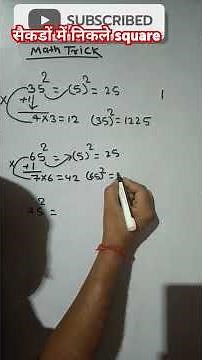 SUBSCRIBED
सैकडों में निकले square
Math Trick
35² → (5)² = 25
x +1
4 x 3 = 12 (35)² = 1225
65² → (5)² = 25
x +1
7 x 6 = 42 (65)² =
75² =